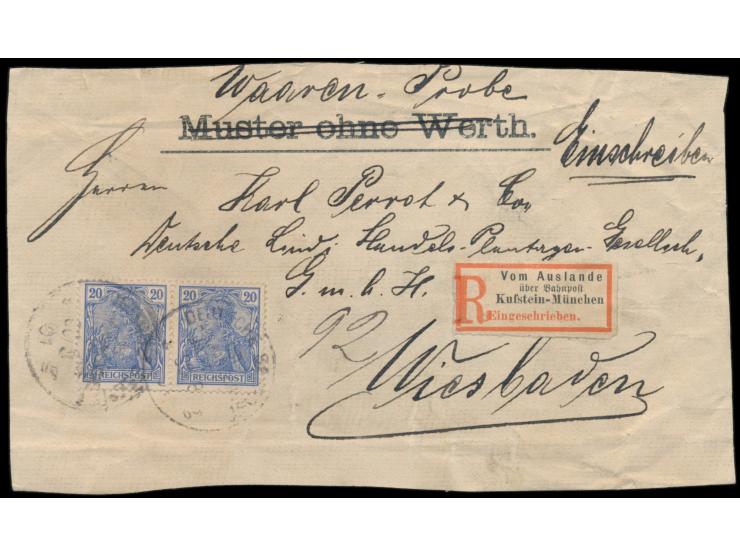 Waaren-Probe
Muster ohne Werth.
Einschreiben
Herren
Karl Perrot & Co,
Deutsche Lindi Handels-Plantagen-Gesellsch,
G.m.b.H.
92
Wiesbaden
R
Vom Auslande
über Bahnpost
Kufstein-München
Eingeschrieben.
20 20
REICHSPOST
20 20
REICHSPOST